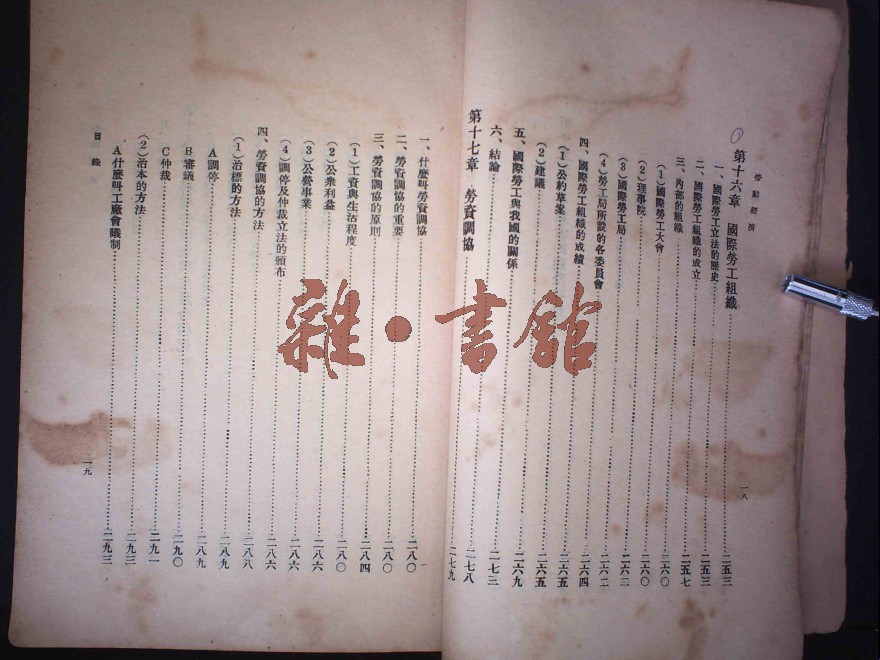 勞動經濟
第十六章 國際勞工組織……二五三
一、國際勞工立法的歷史……二五三
二、國際勞工組織的成立……二五七
三、內部的組織……二六〇
(1)國際勞工大會……二六〇
(2)理事院……二六二
(3)國際勞工局……二六二
(4)勞工局所設的各委員會……二六四
四、國際勞工組織的成績……二六五
(1)公約草案……二六五
(2)建議……二六九
五、國際勞工與我國的關係……二七三
六、結論……二七八
第十七章 勞資調協……二七九
一八
一、什麼叫勞資調協……二八〇
二、勞資調協的重要……二八〇
三、勞資調協的原則……二八四
(1)工資與生活程度……二八〇
(2)公衆利益……二八六
(3)公營事業……二八六
(4)調停及仲裁立法的頒布……二八六
四、勞資調協的方法……二八八
(1)治標的方法……二八九
A調停……二八九
B審議……二九〇
C仲裁……二九一
(2)治本的方法……二九三
A什麼叫工廠會議制……二九三
目錄
一九
雜·書館